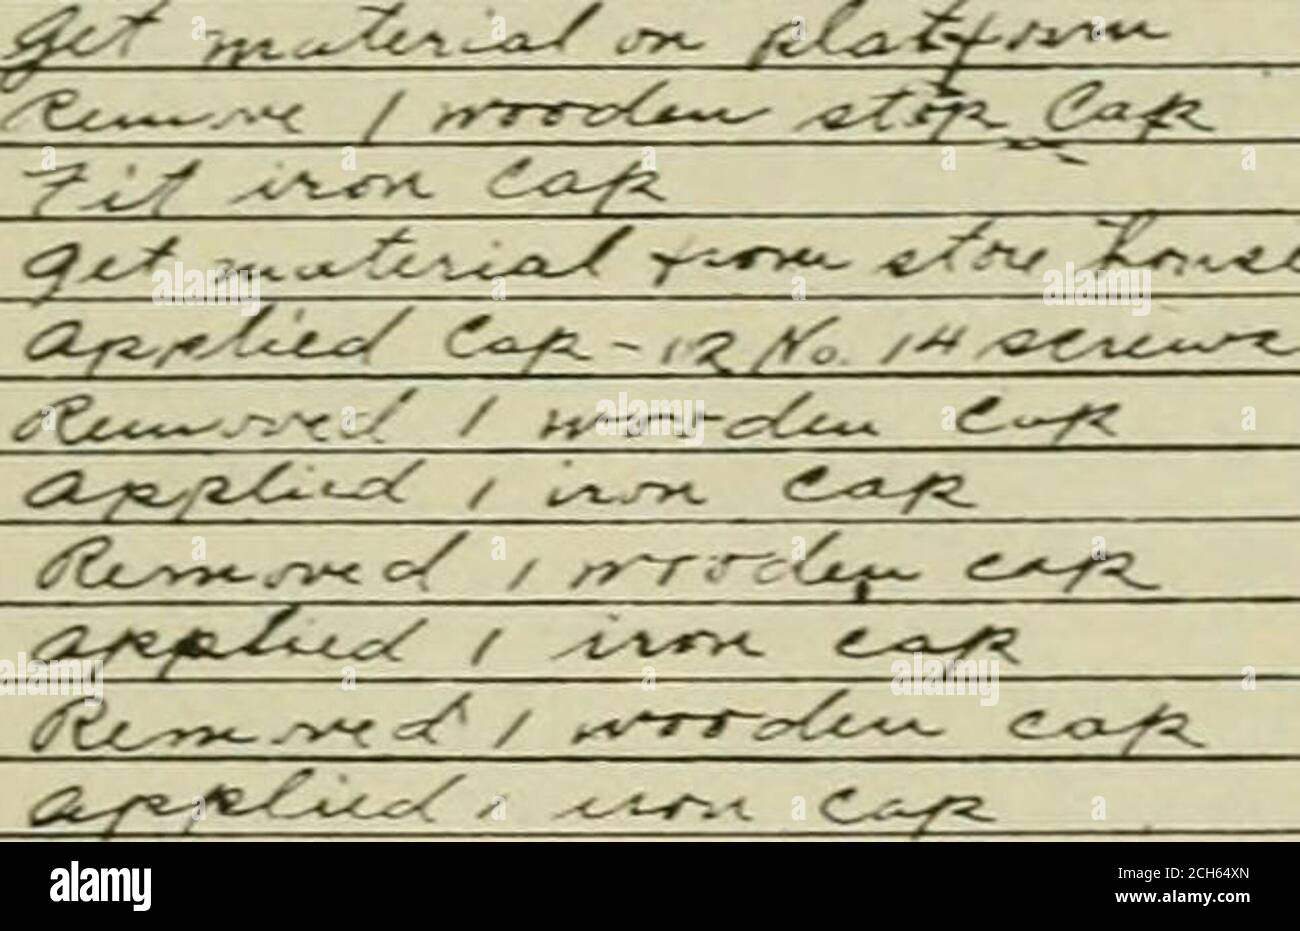 Get material on platform
Remove 1 wooden stop Cap
Fit iron Cap
Get material from store house
Applied Cap - 12 No. 14 screws
Removed 1 wooden Cap
Applied 1 iron Cap
Removed 1 wooden cap
applied 1 iron cap
Removed 1 wooden cap
applied 1 iron Cap
alamy
Image ID: 2CH64XN
www.alamy.com